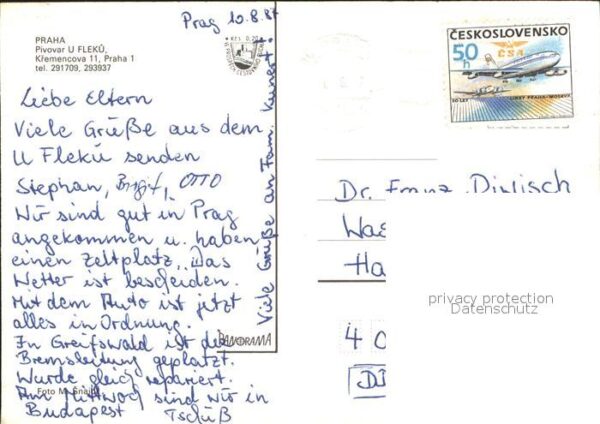 Prag 10.8.87
PRAHA
Pivovar U FLEKŮ,
Křemencova 11, Praha 1
tel. 291709, 293937
Kčs 0,20
Liebe Eltern
Viele Grüße aus dem
U Flekú senden
Stephan, Birgit, OTTO
Wir sind gut in Prag
angekommen u. haben
einen Zeltplatz. Das
Wetter ist bescheiden.
Mit dem Auto ist jetzt
alles in Ordnung.
In Greifswald ist die
Bremsleitung geplatzt.
Wurde gleich repariert.
Am Mittwoch sind wir in
Budapest Tschüß
Foto M.
Viele Grüße an Fam. Kunert!
PANORAMA
ČESKOSLOVENSKO
50 h
ČSA
50 LET LINKY PRAHA-MOSKVA
Dr. Franz Diwisch
Was
Ha
4 0
DD
privacy protection
Datenschutz